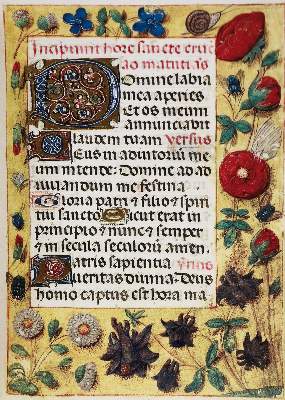 Incipiunt hore sancte cruc
ad matutinas
Domine labia
mea aperies
Et os meum
annunciabit
laudem tuam Versus
Deus in adiutoriu meu
um intende: Domine ad ad
iuuandum me festina
Gloria patri & filio & spiri
tui sancto Sicut erat in
principio & nunc & semper
& in secula seculoru amen.
Patris sapientia
ueritas diuina Deus
homo captus est hora ma